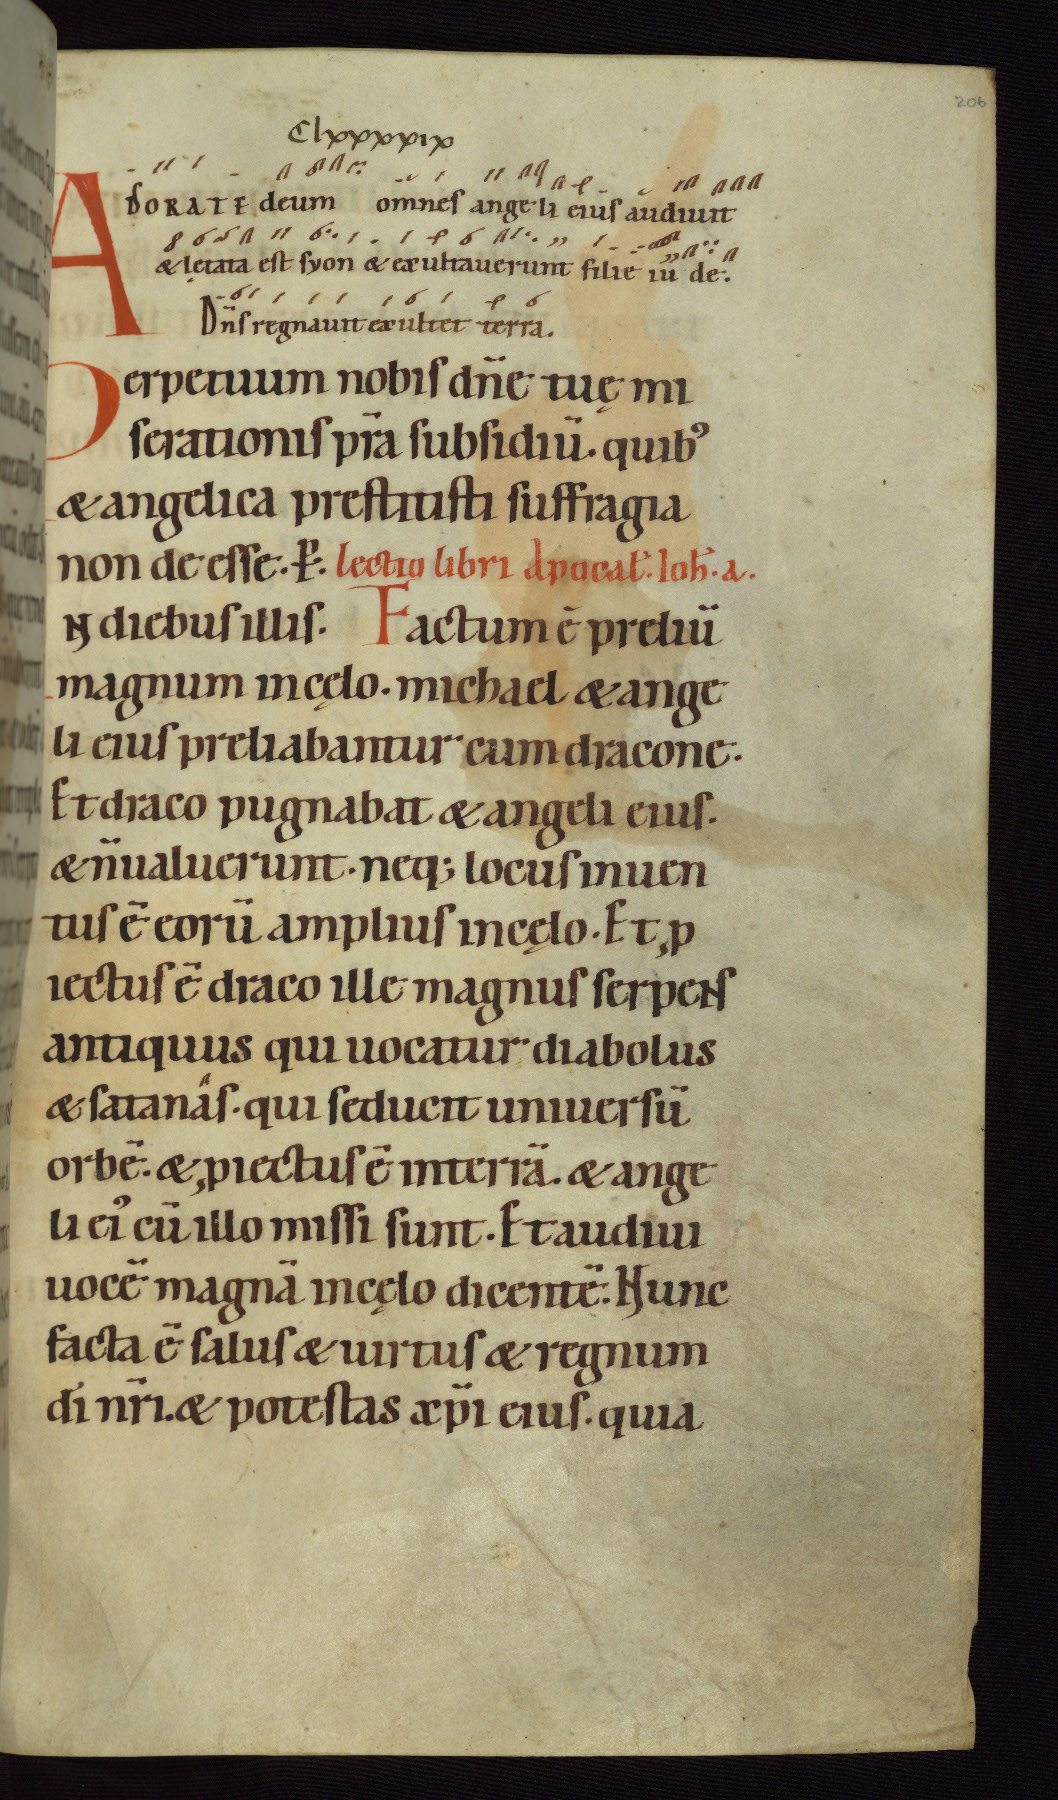 206
Clxxxxix
ADORATE deum omnes angeli eius audiuit
& lętata est syon & exultauerunt filie iu᷃ de.
Dn̄s regnauit exultet terra.
Perpetuum nobis dn̄e tuę mi
serationis pr̄a subsidiū. quib᾽
& angelica prestitisti suffragia
non de esse. P̄. lectio libri Apocal̄. Ioh̄. a.
N diebus illis. Factum ē preliū
magnum in cęlo. michael & ange
li eius preliabantur cum dracone.
Et draco pugnabat & angeli eius.
& n̄ ualuerunt. neq; locus inuen
tus ē eorū amplius in cęlo. Et ꝓ
iectus ē draco ille magnus serpens
antiquus qui uocatur diabolus
& satanas. qui seducit uniuersū
orbē. & ꝓiectus ē in terrā. & ange
li ei᾽ cū illo missi sunt. Et audiui
uocē magnā in cęlo dicentē. Nunc
facta ē salus & uirtus & regnum
di n̄ri. & potestas xp̄i eius. quia